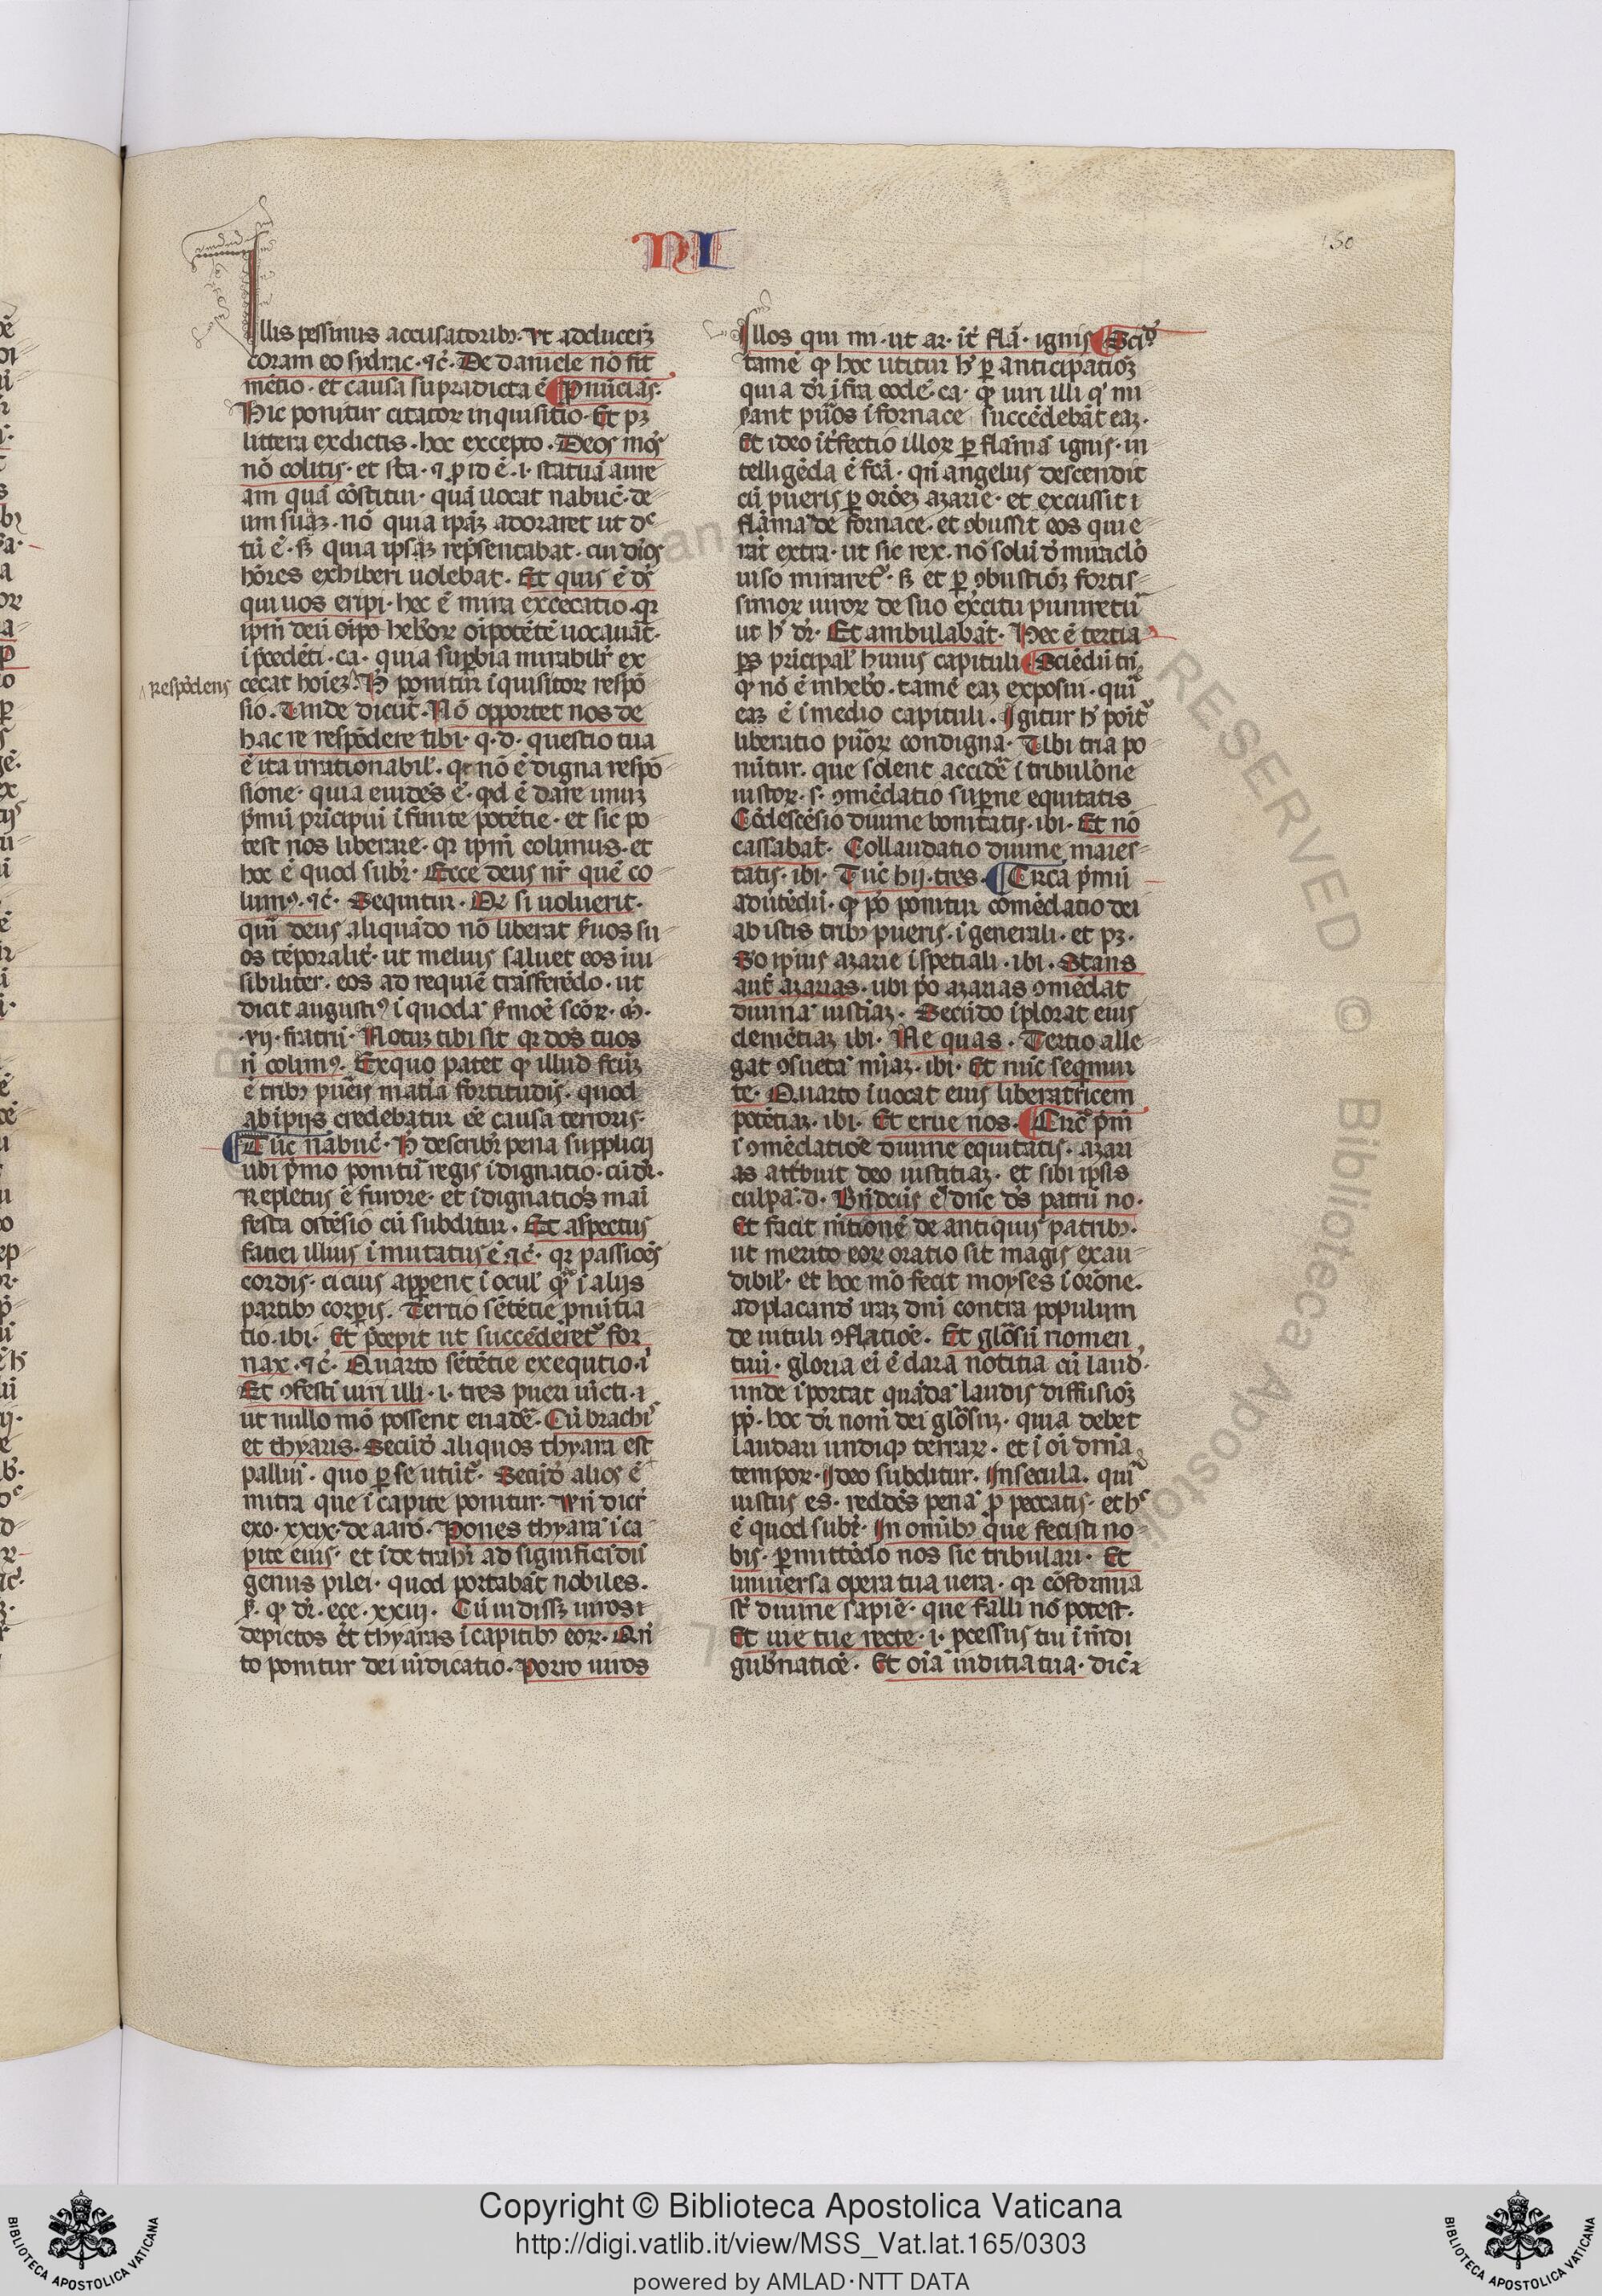 NI
150
Illis pessimis accusatoribꝫ. Vt adducerꝫ
coram eo sydrac. ⁊c̄. De daniele nō fit
mētio. et causa supradicta ē ¶ Pnūciās.
Hic ponitur citatoꝝ inquisitio. Et pꝫ
littera ex dictis. hoc excepto. Deos meos
nō colitis. et sta. ⁊ p id ē. i. statuā aure
am quā cōstitui. quā uocat nabuc̄. de
um suāꝫ. nō quia ipāꝫ adoraret ut de
tū ē. sꝫ quia ipsāꝫ rep̄sentabat. cui diōs
hōres exhiberi uolebat. Et quis ē ds̄
qui uos eripi. hec ē mira excecatio. qꝛ
ipm̄ deū hebr̄oꝝ oīpotētē uocauāt.
i p̄cedēti. ca. quia suꝑbia mirabilr̄ ex
cecat hoīeꝫ. H̄ ponitur iquisitoꝝ respō
respōdens
sio. Vnde dicūt. Nō opportet nos de
hac re respōdere tibi. q. d. questio tua
ē ita irrationabil'. qꝛ nō ē digna respō
sione. quia euidēs ē. qd ē dare unuꝫ
p̄mū pricipiū ifinite potētie. et sic po
test nos liberare. qꝛ ipm̄ colimus. et
hoc ē quod subr̄. Ecce deus nr̄ quē co
limꝰ. ⁊c̄. Sequitur. Qꝛ si uoluerit.
qm̄ deus aliquādo nō liberat suos
os tēporalit̄. ut melius saluet eos iui
sibiliter. eos ad requiē trāsferēdo. ut
dicit augustiꝰ i quodā ẜmoē scōꝝ. m̄.
.vij. fratrū. Notuꝫ tibi sit qꝛ dōs tuos
n̄ colimꝰ. Exquo patet ꝙ illud fcūꝫ
ē tribꝫ pueris mat̄ia fortitudīs. quod
ab ipsis credebatur eē causa terroris.
¶ Tūc nabuc̄. H̄ describr̄ pena supplicij
ubi p̄mo ponitur regis idignatio. cū dr̄.
Repletus ē furore. et idignatiōs mai
festa ostēsio cū subditur. Et aspectus
faciei illius imutatus ē ⁊c̄. qꝛ passiōes
cordis. cicius apparent i ocul' ꝙ̄ i alijs
partibꝫ corpis. Tertio sētētie pnūtia
tio. ibi. Et p̄cepit ut succēderet̄ for
nax. ⁊c̄. Quarto sētētie exequtio. i
Et ꝯfesti uiri illi. i. tres pueri uīcti. i
ut nullo mō possent euadē. Cū brachis
et thyaris. Secūd̄ aliquos thyara est
palliū. quo per se utūt̄. Secūd̄ alios ē
mitra que i capite ponitur. Vn̄ dicr̄
exo. xxix. de aarō. Pones thyarā i ca
pite eius. et ide trahr̄ ad significādū
genus pilei. quod portabāt nobiles.
ẜ. ꝙ dr̄. eze. xxiij. Cū uidissꝫ uiros i
depictos et thyaras i capitibꝫ eoꝝ. Qn̄
to ponitur dei uīdicatio. Porro uiros
Illos qui mi. ut ar. it̄ flā. ignis ¶ Sciꝰ
tamē ꝙ hoc utitur h̄ ꝑ anticipatiōꝫ
quia dr̄ ifra eodē. ca. ꝙ uiri illi qⁱ mi
ẜant pūos i fornace succēdebāt eaꝫ.
Et ideo it̄fectio illoꝝ ꝑ flāmā ignis. in
telligēda ē fcā. qn̄ angelus descendit
cū pueris ꝑ orōeꝫ azarie. et excussit i
flāmā de fornace. et ꝯbussit eos qui e
rāt extra. ut sic rex. nō solū d̄ miraclō
uiso miraret̄. sꝫ et ꝑ ꝯbustiōꝫ fortis
simoꝝ uiroꝝ de suo excitu puniretū
ut h̄ dr̄. Et ambulabāt. Hec ē tertia
ps̄ prīcipal' huius capituli ¶ Sciēdū tn̄
ꝙ nō ē inhebr̄o. tamē eaꝫ exposui. qm̄
eaꝫ ē i medio capituli. Igitur h̄ poīt̄
liberatio pūoꝝ condigna. Vbi tria po
nūtur. que solent accidē i tribulōne
iustoꝝ. s. ꝯmēdatio suꝑne equitatis
Cōdescēsio diuine bonitatis. ibi. Et nō
cassabāt. Collaudatio diuine maies
tatis. ibi. Tūc hij. tres. ¶ Circa p̄mū
aduertēdū. ꝙ p̄o ponitur cōmēdatio dei
ab istis tribꝫ pueris. i generali. et pꝫ.
So ipius azarie i spetiali. ibi. Stans
aut̄ azarias. ubi p̄o azarias ꝯmēdat
diuinā iustiaꝫ. Secūdo iplorat eius
clemētiaꝫ ibi. Ne quas. Tertio alle
gat ꝯsuetā miaꝫ. ibi. Et nūc seqmur
te. Quarto iuocat eius liberatricem
potētiaꝫ. ibi. Et erue nos. ¶ Circā p̄m̄
i ꝯmēdatiōe diuine equitatis. azari
as attbuit deo iustitiaꝫ. et sibi ipsis
culpā. d. Bn̄dcūs es dn̄e ds̄ patrū no.
Et facit mētionē de antiquis patribꝫ.
ut merito eoꝝ oratio sit magis exau
dibil'. et hoc mō fecit moyses i orōne.
ad placand̄ iraꝫ dn̄i contra populum
de uituli ꝯflatiōe. Et glōsū nomen
tuū. gloria ei ē clara notitia cū laud̄.
unde iportat quādā laudis diffusiōꝫ
pp̄. hoc dr̄ nom̄ dei glōsuꝫ. quia debet
laudari undiqꝫ terraꝝ. et i oī dr̄nā
tempoꝝ. Ideo subditur. In secula. qm̄
iustus es. reddēs penā p̄ peccatis. et hᶜ
ē quod subr̄. In omībꝫ que fecisti no
bis. ꝑmittēdo nos sic tribulari. Et
uniuersa opera tua uera. qꝛ cōformia
st̄ diuine sapiē. que falli nō potest.
Et uie tue recte. i. pcessus tui i mūdi
gub̄natiōe. Et oīa iuditia tua. dic̄ꝛ
Copyright © Biblioteca Apostolica Vaticana
http://digi.vatlib.it/view/MSS_Vat.lat.165/0303
powered by AMLAD·NTT DATA
BIBLIOTECA APOSTOLICA VATICANA
BIBLIOTECA APOSTOLICA VATICANA